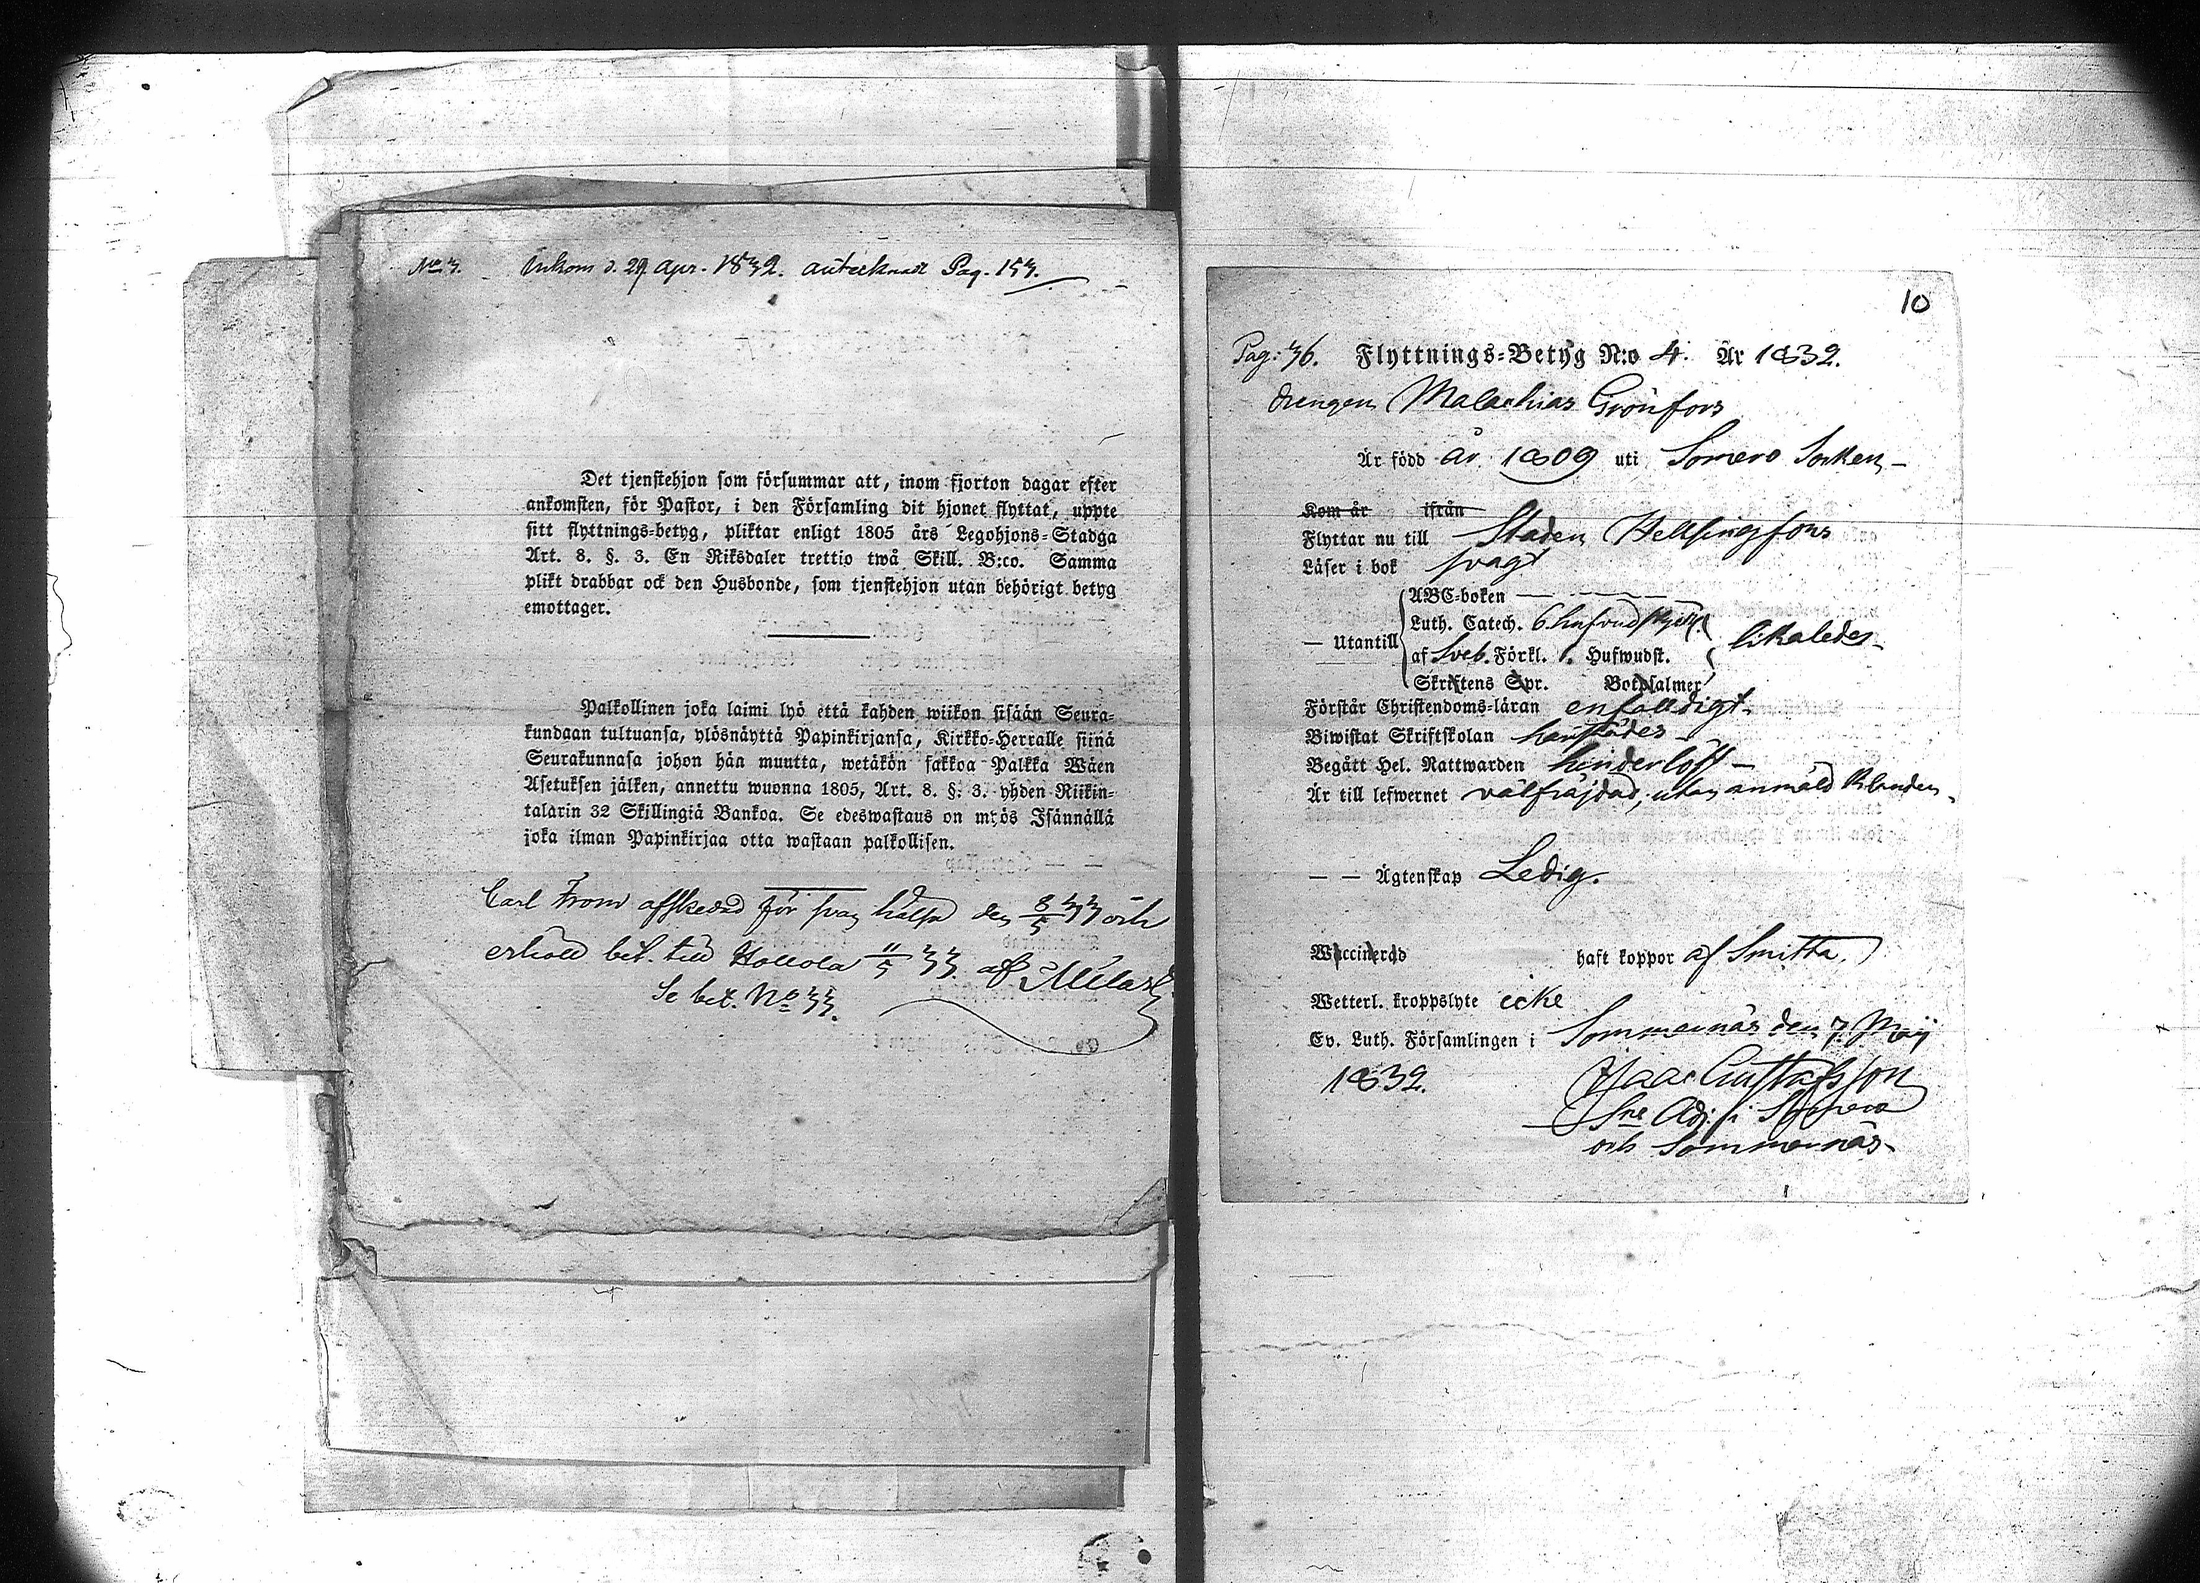 No 3. Inkom d. 29 Apr. 1832. antecknadt Pag. 153.
Det tjenstehjon som försummar att, inom fjorton dagar efter
ankomsten, för Pastor, i den Församling dit hjonet flyttat, uppte
sitt flyttnings-betyg, pliktar enligt 1805 års Legohjons-Stadga
Art. 8. §. 3. En Riksdaler trettio twå Skill. B:co. Samma
plikt drabbar ock den Husbonde, som tjenstehjon utan behörigt betyg
emottager.
Palkollinen joka laimi lyö että kahden wiikon sisään Seura-
kundaan tultuansa, ylösnäyttä Papinkirjansa, Kirkko-Herralle siinä
Seurakunnasa johon hän muutta, wetäkön sakkoa Palkka Wäen
Asetuksen jälken, annettu wuonna 1805, Art. 8. §. 3. yhden Riikin-
talarin 32 Skillingiä Bankoa. Se edeswastaus on myös Isännällä
joka ilman Papinkirjaa otta wastaan palkollisen.
Carl From afskedad för svag hälsa den 8/5 33 och
erhöll bet. till Hollola 11/5 33. af
Se bet. No 33.
10
Pag: 36. Flyttnings-Betyg N:o 4. År 1832.
drengen Malachias Grönfors
Är född år 1809 uti Somero Socken
Kom år ifrån
Flyttar nu till Staden Helsingfors
Läser i bok svagt
ABC-boken
Luth. Catech. 6 hufvudstycken
— Utantill likaledes
af Sveb. Förkl. Hufwudst.
Skriftens Spr. Botpsalmer
Förstår Christendoms-läran enfaldigt
Biwistat Skriftskolan härstädes
Begått Hel. Nattwarden hinderlöst
Är till lefwernet välfräjdad, utan anmäld klander.
— — Ägtenskap Ledig.
Waccinerad haft koppor af Smitta.
Wetterl. kroppslyte icke
Ev. Luth. Församlingen i Sommernäs den 7. Maij
1832. Isaac Gustafsson
Sne Adj. i Somero
och Sommernäs